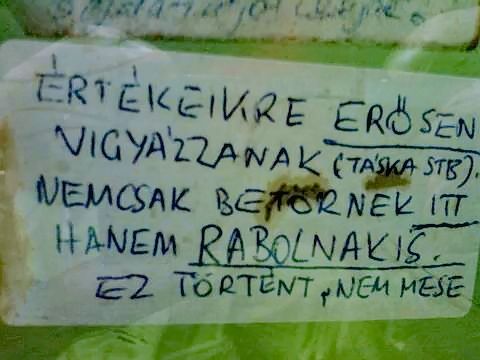 ÉRTÉKEIKRE ERŐSEN
VIGYÁZZANAK (TÁSKA STB).
NEMCSAK BETÖRNEK ITT
HANEM RABOLNAK IS.
EZ TÖRTÉNT, NEM MESE